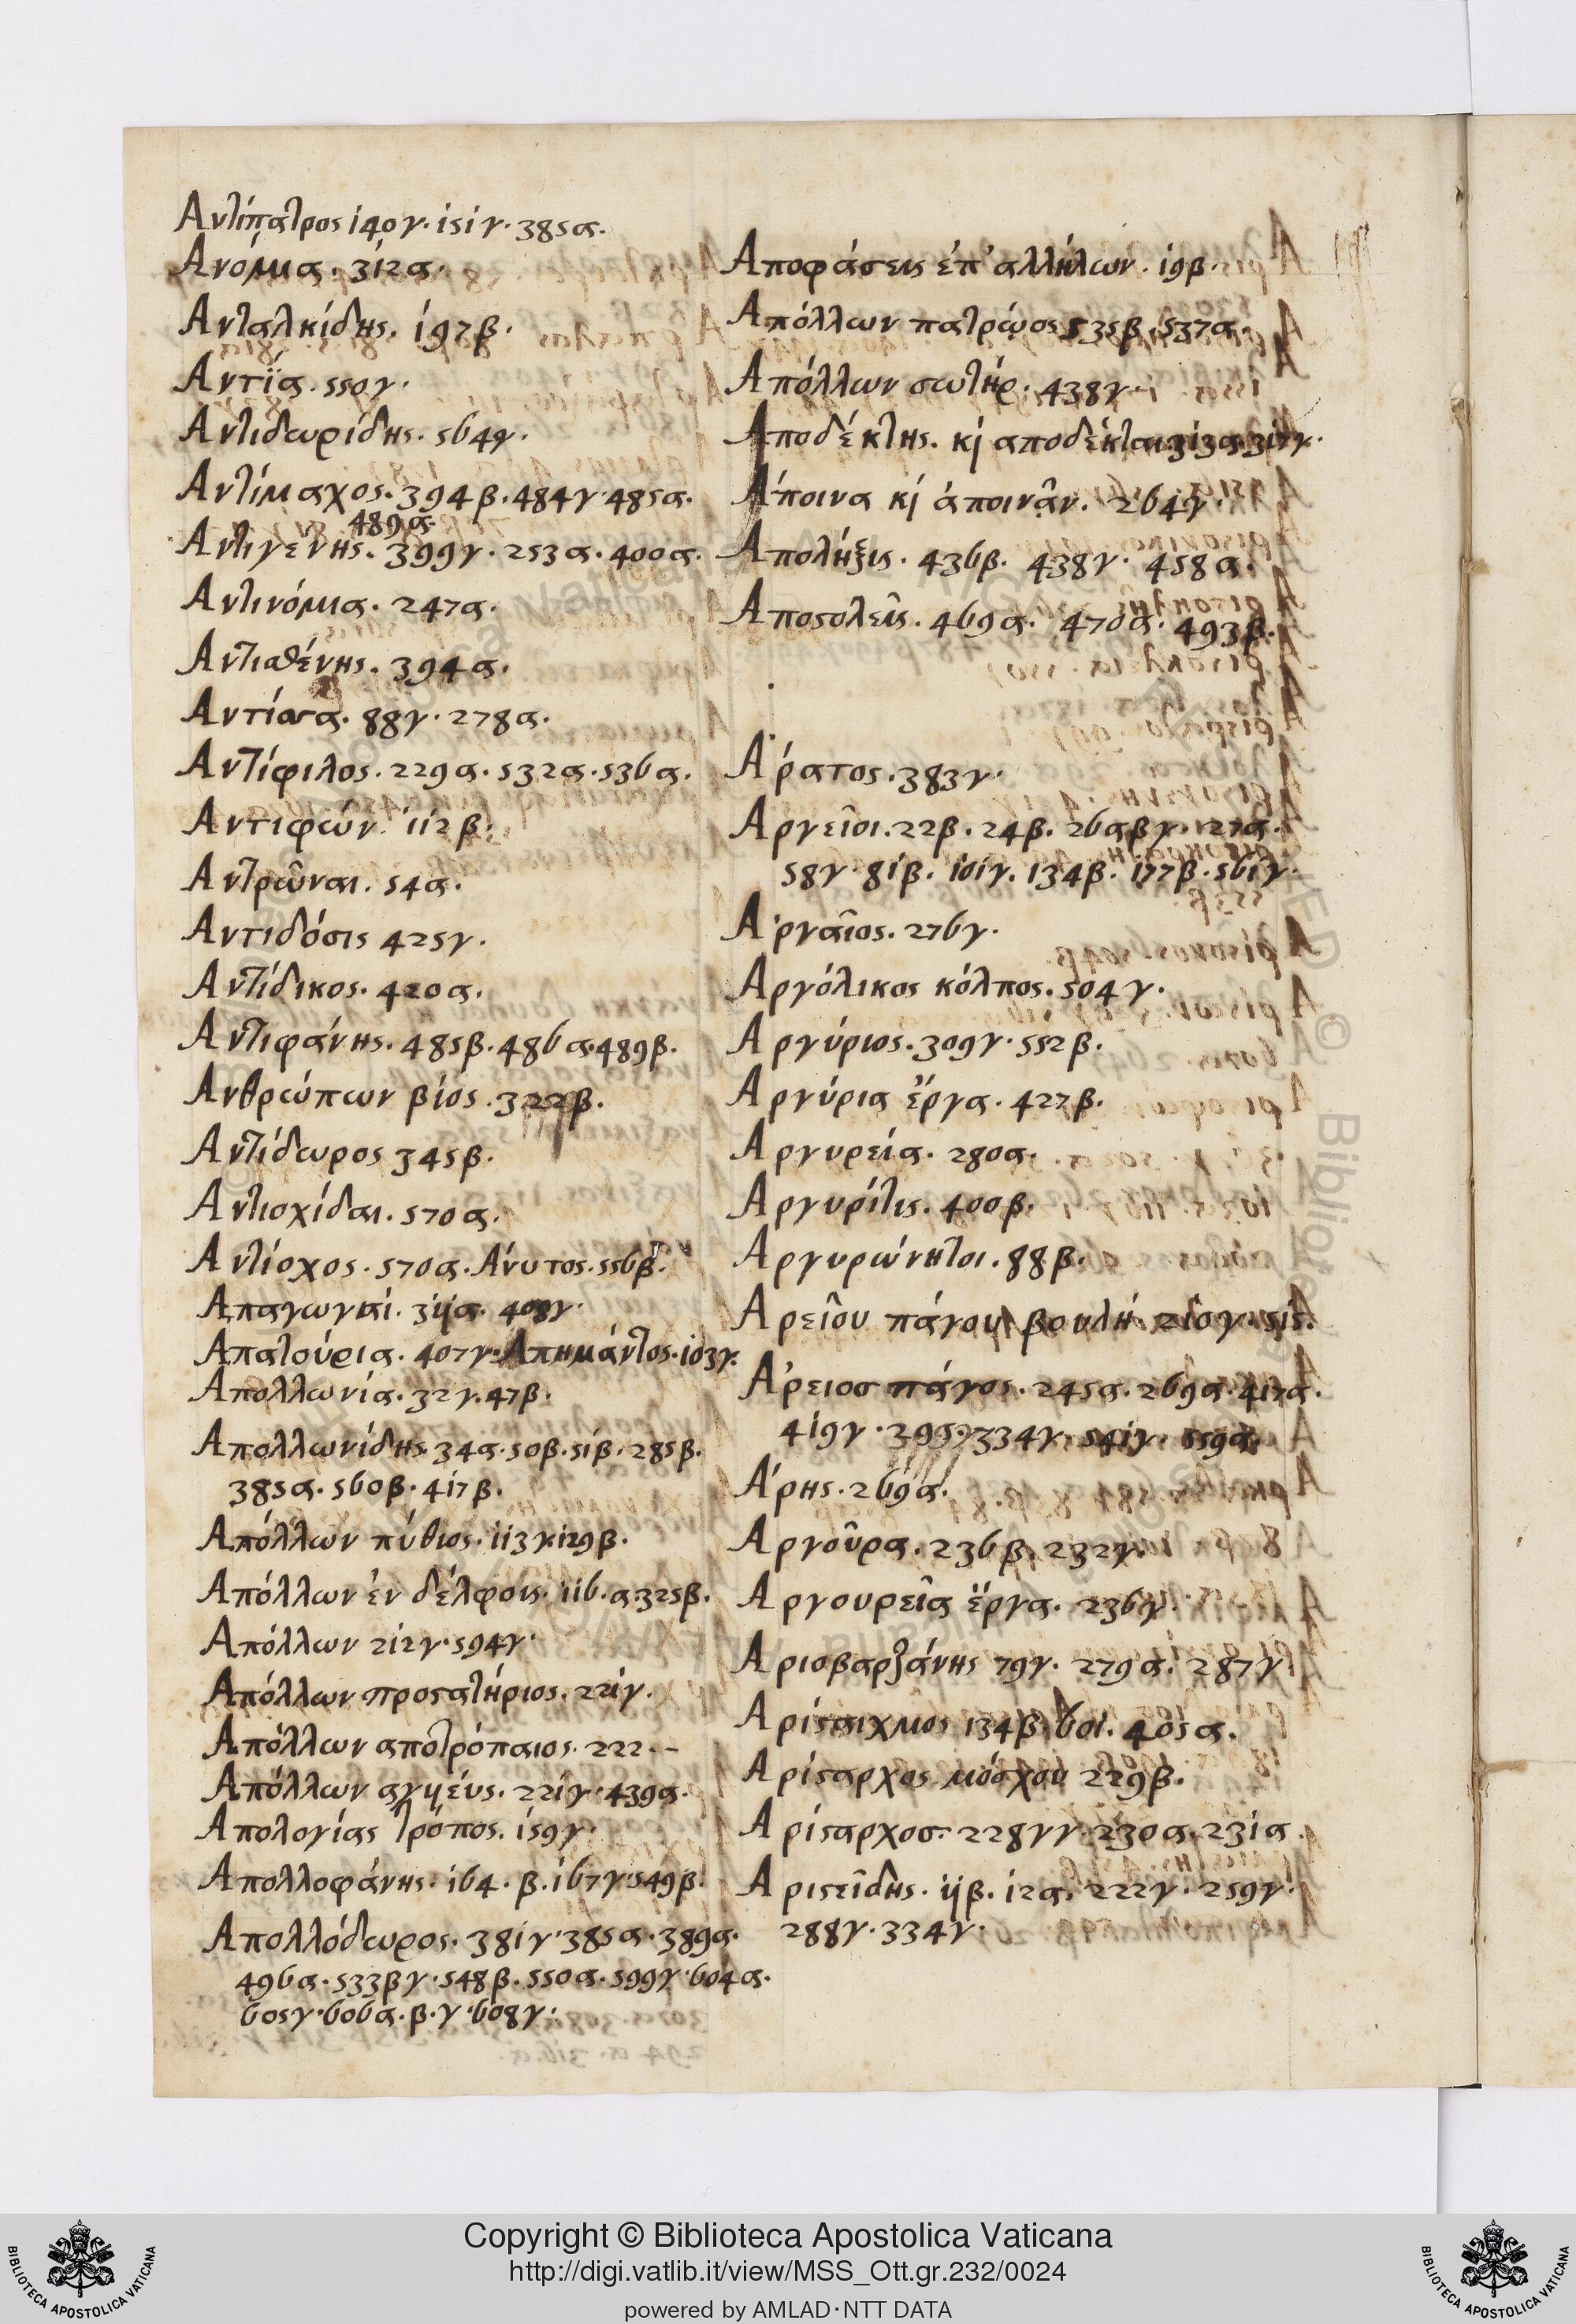 Αντίπατρος 140γ. 151γ. 385α.
Ανόμια. 312α.
Ανταλκίδης. 197β.
Αντϊα. 550γ.
Αντιδωρίδης. 564γ.
Αντίμαχος. 394β. 484γ. 485α.
489α.
Αντιγένης. 399γ. 253α. 400α.
Αντινόμια. 247α.
Αντισθένης. 394α.
88γ. 278α.
Αντίφιλος. 229α. 532α. 536α.
Αντιφών. 112β.
Αντρῶναι. 54α.
Αντιδόσις 425γ.
Αντίδικος. 420α.
Αντιφάνης. 485β. 486α. 489β.
Ανθρώπων βίος. 322β.
Αντίδωρος 345β.
Αντιοχίδαι. 570α.
Αντίοχος. 570α. Άνυτος. 556β.
Απαγωγαί. 311α. 408γ.
Απατούρια. 407γ. Απημάντος. 103γ.
Απολλωνία. 32γ. 47β.
Απολλωνίδης. 34α. 50β. 51β. 285β.
385α. 560β. 417β.
Απόλλων πύθιος. 113γ. 129β.
Απόλλων ἐν δέλφοις. 116. α. 325β.
Απόλλων 212γ. 594γ.
Απόλλων προστατήριος. 221γ.
Απόλλων αποτρόπαιος. 222.–
Απόλλων αγυιέυς. 221γ. 439α.
Απολογίας τρόπος. 159γ.
Απολλοφάνης. 164. β. 167γ. 549β.
Απολλόδωρος. 381γ. 385α. 389α.
496α. 533βγ. 548β. 550α. 599γ. 604α.
605γ. 606α. β. γ. 608γ.
Αποφάσεις ἐπ' αλλήλων. 19β.
Απόλλων πατρῷος 535β. 537α.
Απόλλων σωτήρ. 438γ.
Αποδέκτης. κὶ αποδέκται 313α. 317γ.
Άποινα κὶ ἀποινᾶν. 264γ.
Απολήξις. 436β. 438γ. 458α.
Αποστολεῖς. 469α. 470α. 493β.
Άρατος. 383γ.
Αργεῖοι. 22β. 24β. 26αβγ. 27α.
58γ. 81β. 101γ. 134β. 177β. 561γ.
Αργαῖος. 276γ.
Αργόλικος κόλπος. 504γ.
Αργύριος. 309γ. 552β.
Αργύρια ἔργα. 427β.
Αργυρεία. 280α.
Αργυρίτις. 400β.
Αργυρώνητοι. 88β.
Αρείου πάγου βουλή. 210γ.
Άρειος πάγος. 245α. 269α. 417α.
419γ. 334γ. 541γ. 559α.
Άρης. 269α.
Αργοῦρα. 236β. 232γ.
Αργουρεῖα ἔργα. 236γ.
Αριοβαρζάνης 79γ. 279α. 287γ.
Αρίσταιχμος 134β. 601. 405α.
Αρίσταρχος μόσχου 229β.
Αρίσταρχος. 228γγ. 230α. 231α.
Αριστεῖδης. 11β. 12α. 222γ. 259γ.
288γ. 334γ.
Copyright © Biblioteca Apostolica Vaticana
http://digi.vatlib.it/view/MSS_Ott.gr.232/0024
powered by AMLAD·NTT DATA
BIBLIOTECA APOSTOLICA VATICANA
BIBLIOTECA APOSTOLICA VATICANA